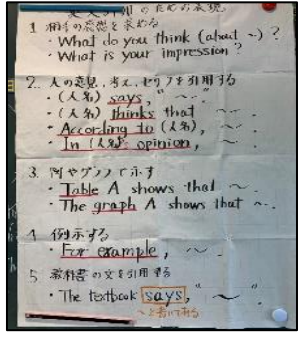 英文引用のための表現
1 相手の意見を求める
・What do you think (about ~)?
・What is your impression?
2. 人の意見、考え、セリフを引用する
・(人名) says, " ~ ."
・(人名) thinks that ~
・According to (人名), ~
・In (人名)' opinion, ~
3. 図やグラフで示す
・Table A shows that ~.
・The graph A shows that ~.
4 例示する
・For example, ~
5 教科書の文を引用する
・The textbook says, " ~ "
~と書いてある